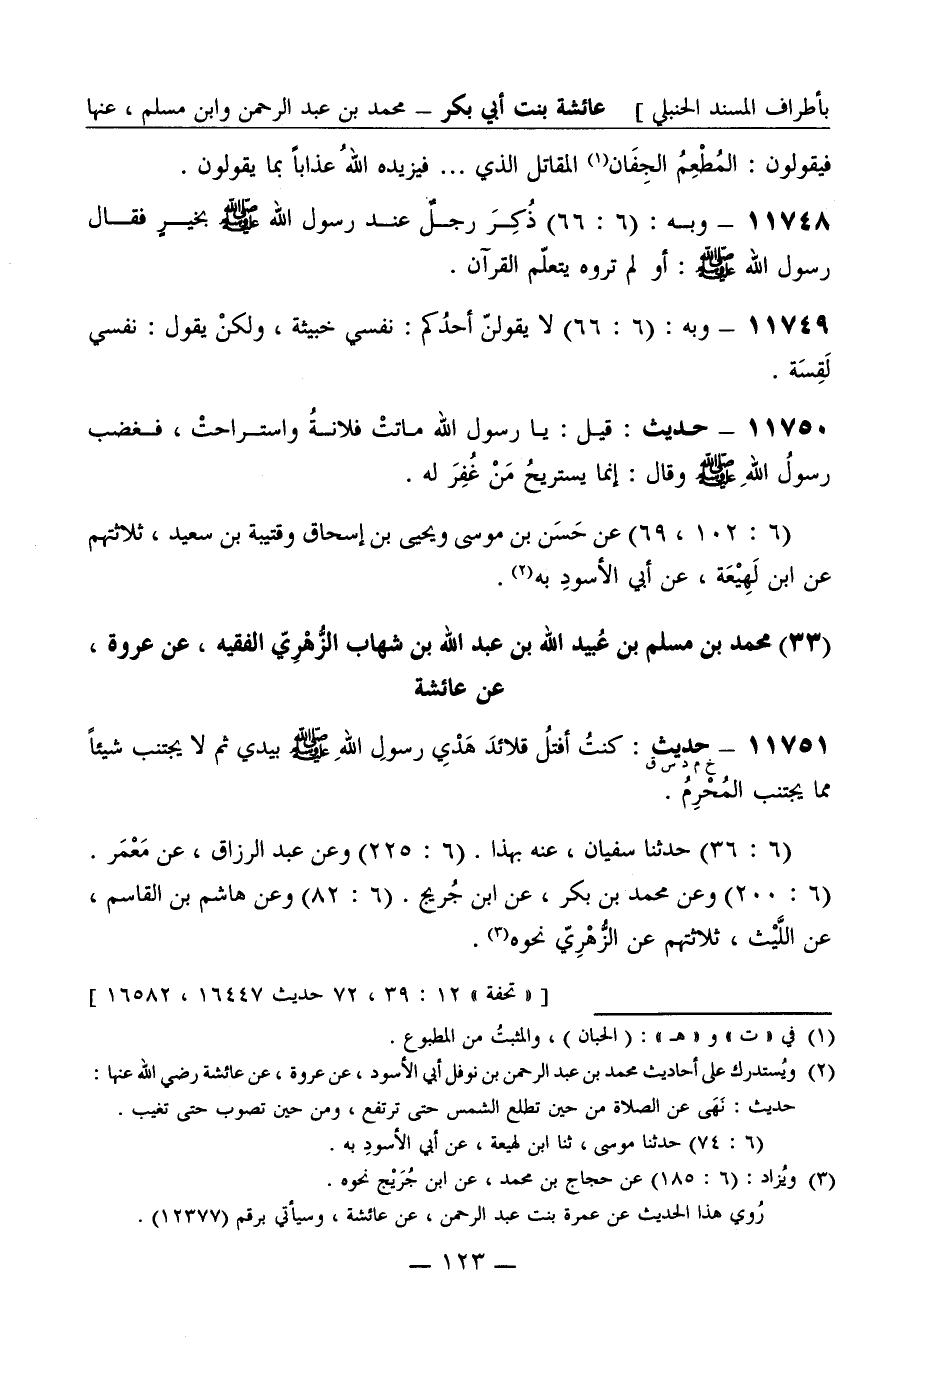 بأطراف المسند الحنبلي ] عائشة بنت أبي بكر – محمد بن عبد الرحمن وابن مسلم ، عنها
فيقولون : المُطْعِمُ الجِفَان(١) المقاتل الذي ... فيزيده اللهُ عذاباً بما يقولون .
١١٧٤٨ – وبه : (٦ : ٦٦) ذُكِرَ رجلٌ عند رسول الله ﷺ بخيرٍ فقال
رسول الله ﷺ : أو لم تروه يتعلّم القرآن .
١١٧٤٩ – وبه : (٦ : ٦٦) لا يقولنّ أحدُكم : نفسي خبيثة ، ولكنْ يقول : نفسي
لَقِسَة .
١١٧٥٠ – حديث : قيل : يا رسول الله ماتتْ فلانةُ واستراحتْ ، فغضب
رسولُ اللهِ ﷺ وقال : إنما يستريحُ مَنْ غُفِرَ له .
(٦ : ١٠٢ ، ٦٩) عن حَسَن بن موسى ويحيى بن إسحاق وقتيبة بن سعيد ، ثلاثتهم
عن ابن لَهِيْعَة ، عن أبي الأسودِ به(٢) .
(٣٣) محمد بن مسلم بن عُبيد الله بن عبد الله بن شهاب الزُّهْرِيّ الفقيه ، عن عروة ،
عن عائشة
١١٧٥١ – حديث : كنتُ أفتلُ قلائدَ هَدْيِ رسولِ اللهِ ﷺ بيدي ثم لا يجتنب شيئاً
خ م د س ق
مما يجتنب المُحْرِمُ .
(٦ : ٣٦) حدثنا سفيان ، عنه بهذا . (٦ : ٢٢٥) وعن عبد الرزاق ، عن مَعْمَر .
(٦ : ٢٠٠) وعن محمد بن بكر ، عن ابن جُريج . (٦ : ٨٢) وعن هاشم بن القاسم ،
عن اللَّيْث ، ثلاثتهم عن الزُّهْرِيّ نحوه(٣) .
[ « تحفة » ١٢ : ٣٩ ، ٧٢ حديث ١٦٤٤٧ ، ١٦٥٨٢ ]
(١) في « ت » و « هـ » : ( الحبان ) ، والمثبتُ من المطبوع .
(٢) ويُستدرك على أحاديث محمد بن عبد الرحمن بن نوفل أبي الأسود ، عن عروة ، عن عائشة رضي الله عنها :
حديث : نَهَى عن الصلاة من حين تطلع الشمس حتى ترتفع ، ومن حين تصوب حتى تغيب .
(٦ : ٧٤) حدثنا موسى ، ثنا ابن لهيعة ، عن أبي الأسودِ به .
(٣) ويُزاد : (٦ : ١٨٥) عن حجاج بن محمد ، عن ابن جُرَيْج نحوه .
رُوي هذا الحديث عن عمرة بنت عبد الرحمن ، عن عائشة ، وسيأتي برقم (١٢٣٧٧) .
– ١٢٣ –